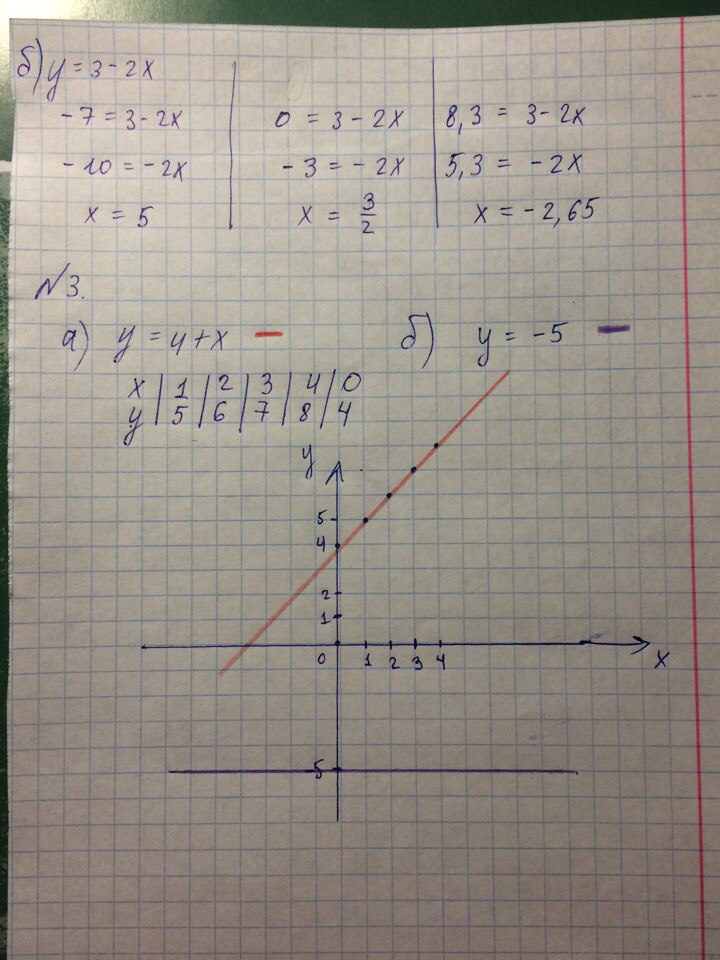 б) y = 3 - 2x
-7 = 3 - 2x | 0 = 3 - 2x | 8,3 = 3 - 2x
-10 = -2x | -3 = -2x | 5,3 = -2x
x = 5 | x = 3/2 | x = -2,65
№3.
а) y = 4 + x — б) y = -5 —
x | 1 | 2 | 3 | 4 | 0
y | 5 | 6 | 7 | 8 | 4
y
5
4
2
1
0 1 2 3 4 x
-5